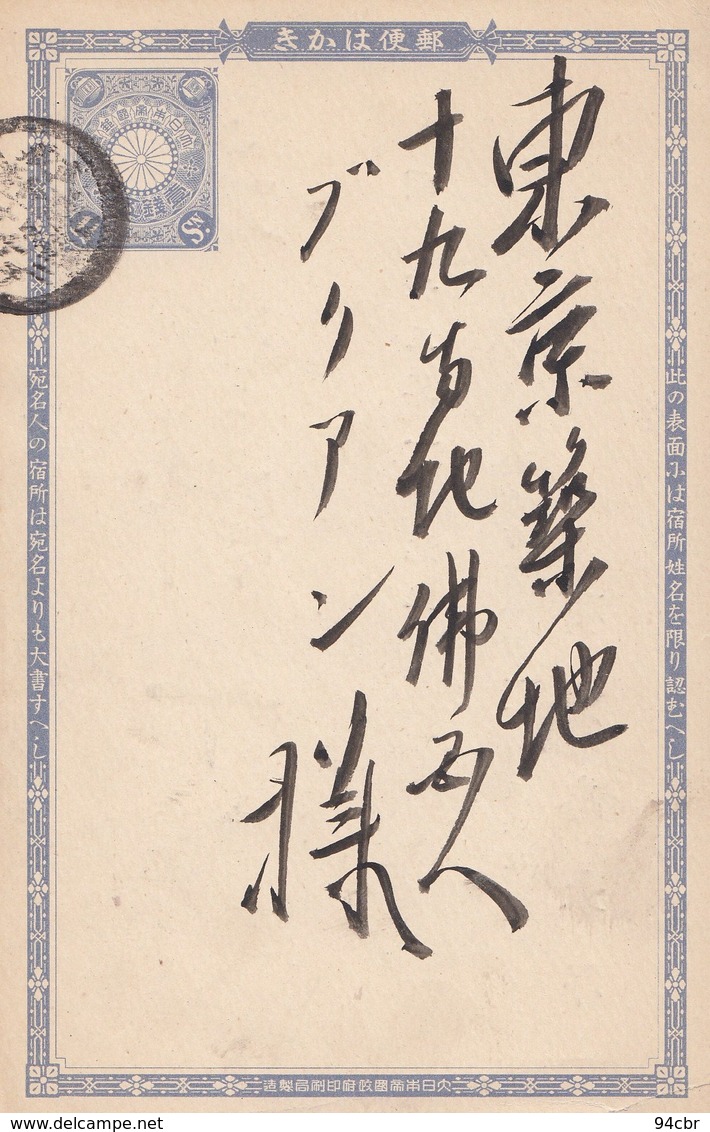 郵便はかき
此の表面には宿所姓名を限り認むへし
東京築地
十九番地佛国人
ブリアン
様
宛名人の宿所は宛名よりも大書すへし
大日本帝國政府印刷局製造
大日本帝國郵便
壹錢
1 Sn.
www.delcampe.net
94cbr